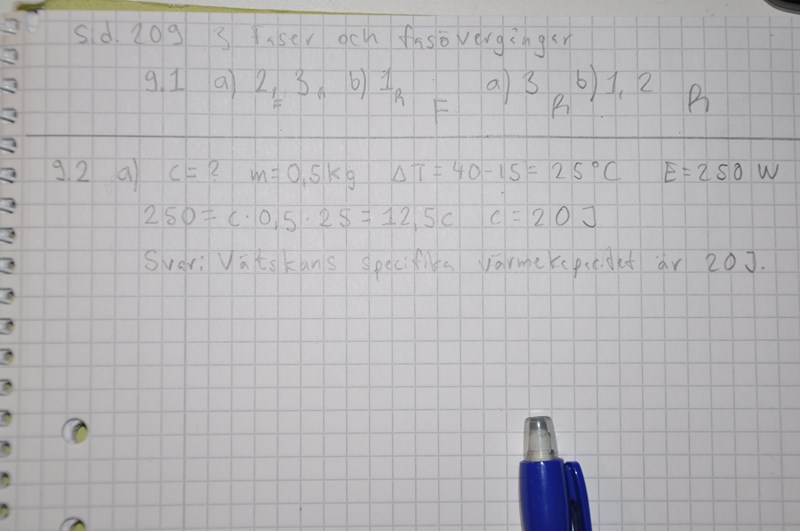 Sid. 209 3 faser och fasövergångar
9.1 a) 2, 3, b) 1 R F a) 3 R b) 1, 2 R
F
9.2 a) c = ? m = 0,5 kg ΔT = 40-15 = 25°C E = 250 W
250 = c · 0,5 · 25 = 12,5c c = 20 J
Svar: Vätskans specifika värmekapacitet är 20 J.